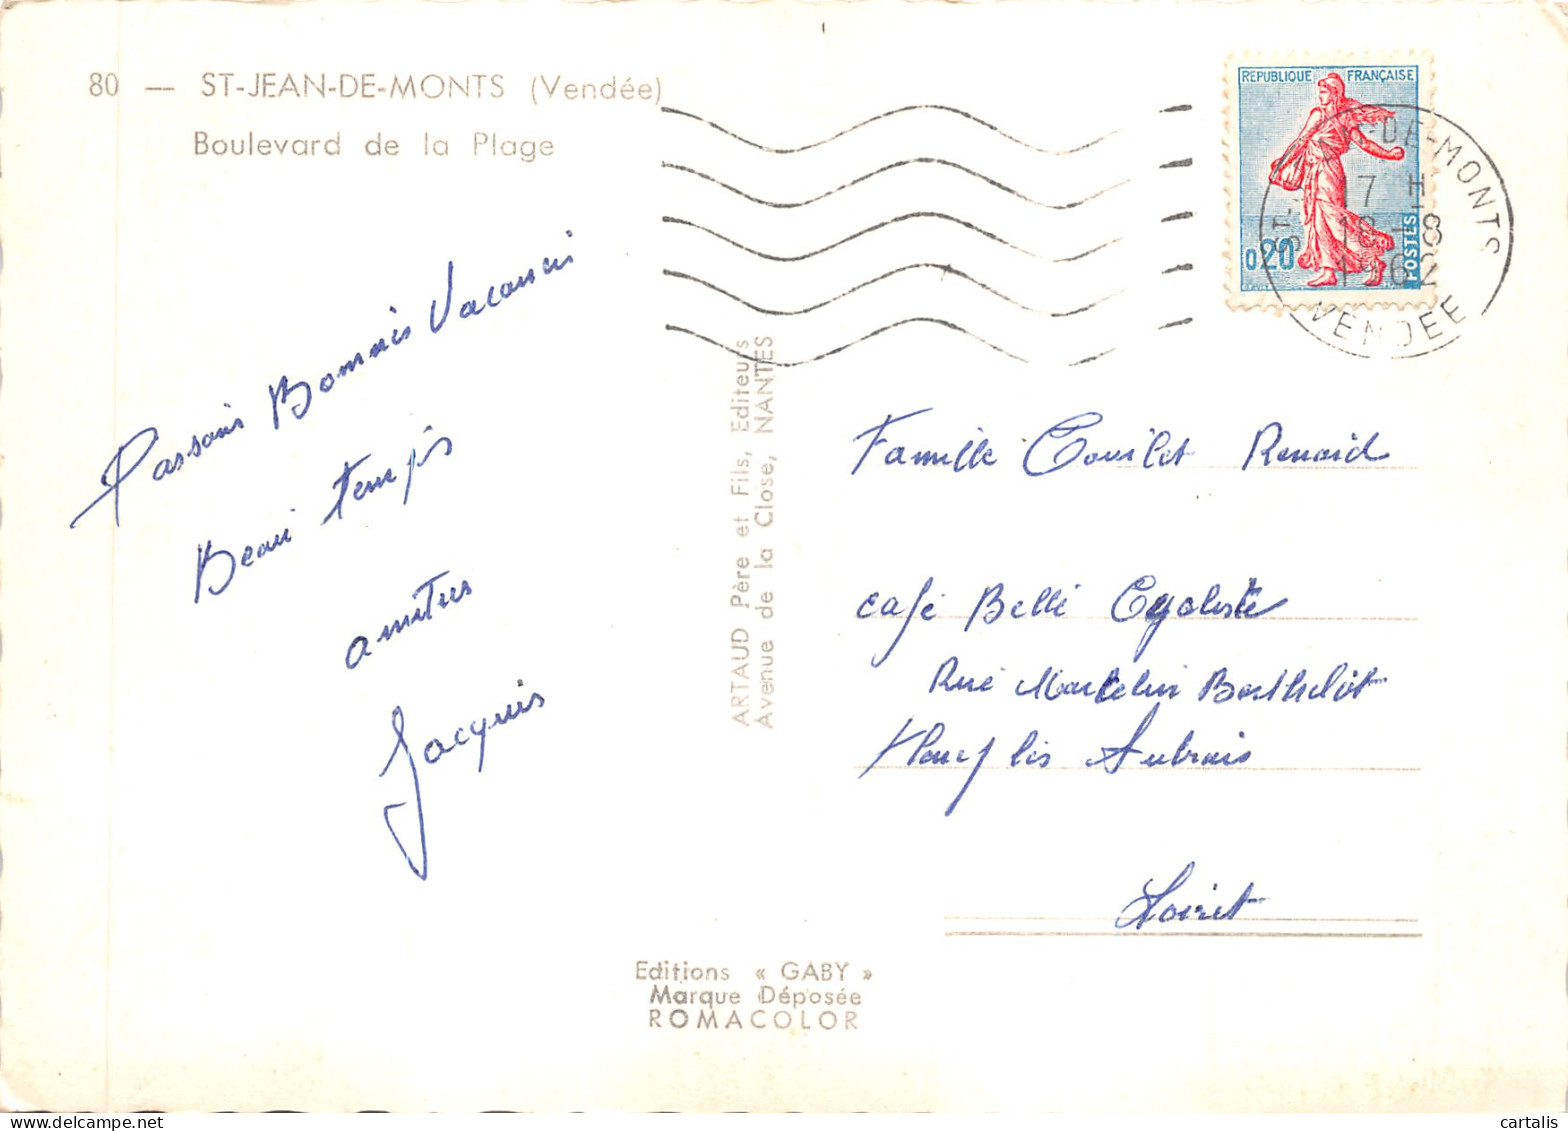 80 — ST-JEAN-DE-MONTS (Vendée)
Boulevard de la Plage
REPUBLIQUE FRANÇAISE
0,20
POSTES
ST-JEAN-DE-MONTS
17 H
18-8
1962
VENDEE
Passons Bonnes Vacances
Beau temps
amitiés
Jacques
ARTAUD Père et Fils, Editeurs
Avenue de la Close, NANTES
Famille Renard
café Belle Cycliste
Rue Marcelin Berthelot
Fleury les Aubrais
Loiret
Editions « GABY »
Marque Déposée
ROMACOLOR
cartalis